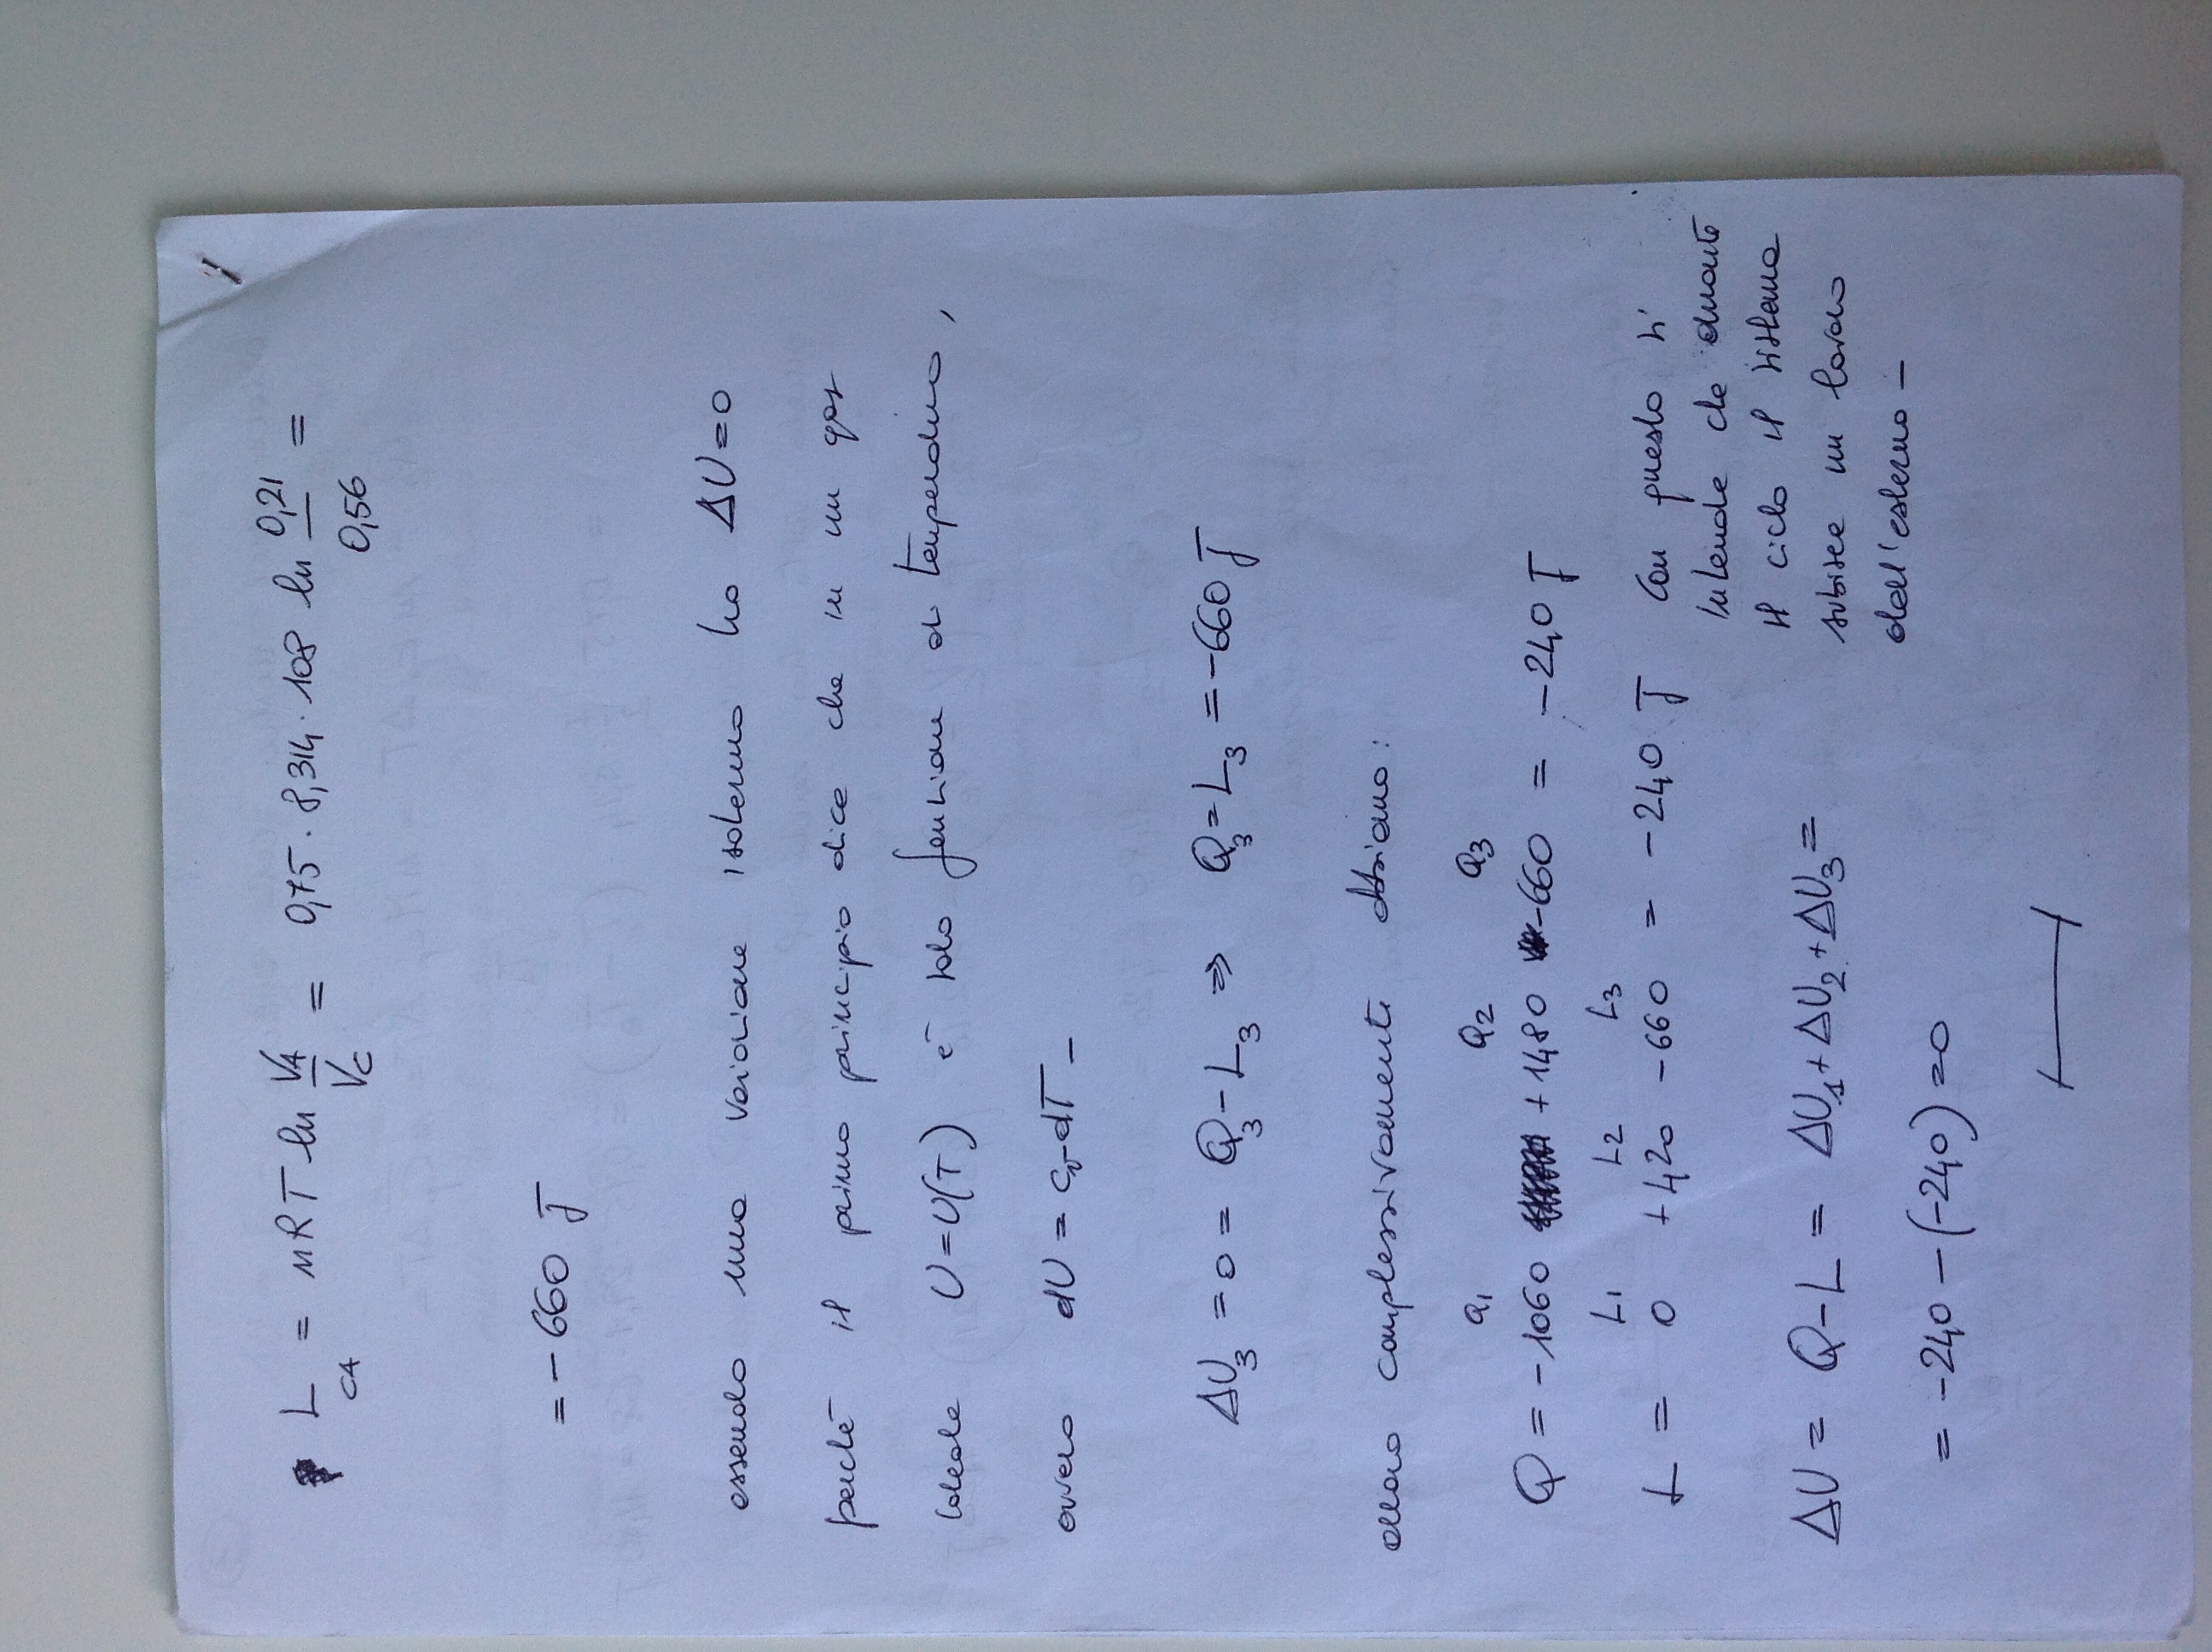 L_CA = nRT ln V_A/V_C = 0,75 · 8,314 · 108 ln 0,21/0,56 =
= -660 J
essendo una variazione isoterma ho ΔU=0
perché il primo principio dice che in un gas
ideale U=U(T) è solo funzione di temperatura,
ovvero dU = c_v dT –
ΔU_3 = 0 = Q_3 - L_3 ⇒ Q_3 = L_3 = -660 J
allora complessivamente abbiamo:
Q_1 Q_2 Q_3
Q = -1060 +1480 -660 = -240 J
L_1 L_2 L_3
L = 0 +420 -660 = -240 J
con questo si
intende che durante
il ciclo il sistema
subisce un lavoro
dall'esterno –
ΔU = Q-L = ΔU_1+ΔU_2+ΔU_3 =
= -240 -(-240) =0